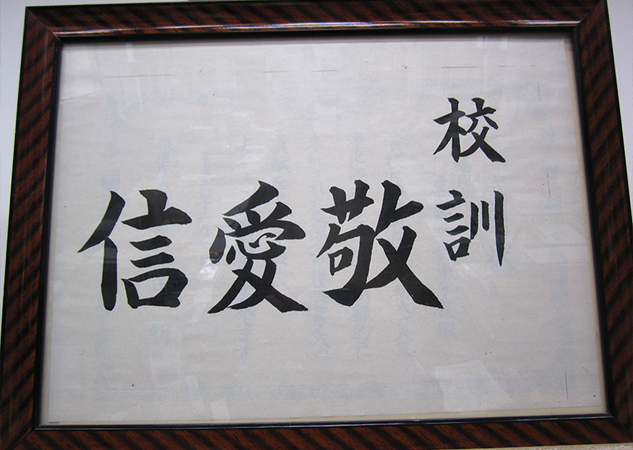 校訓
敬愛信